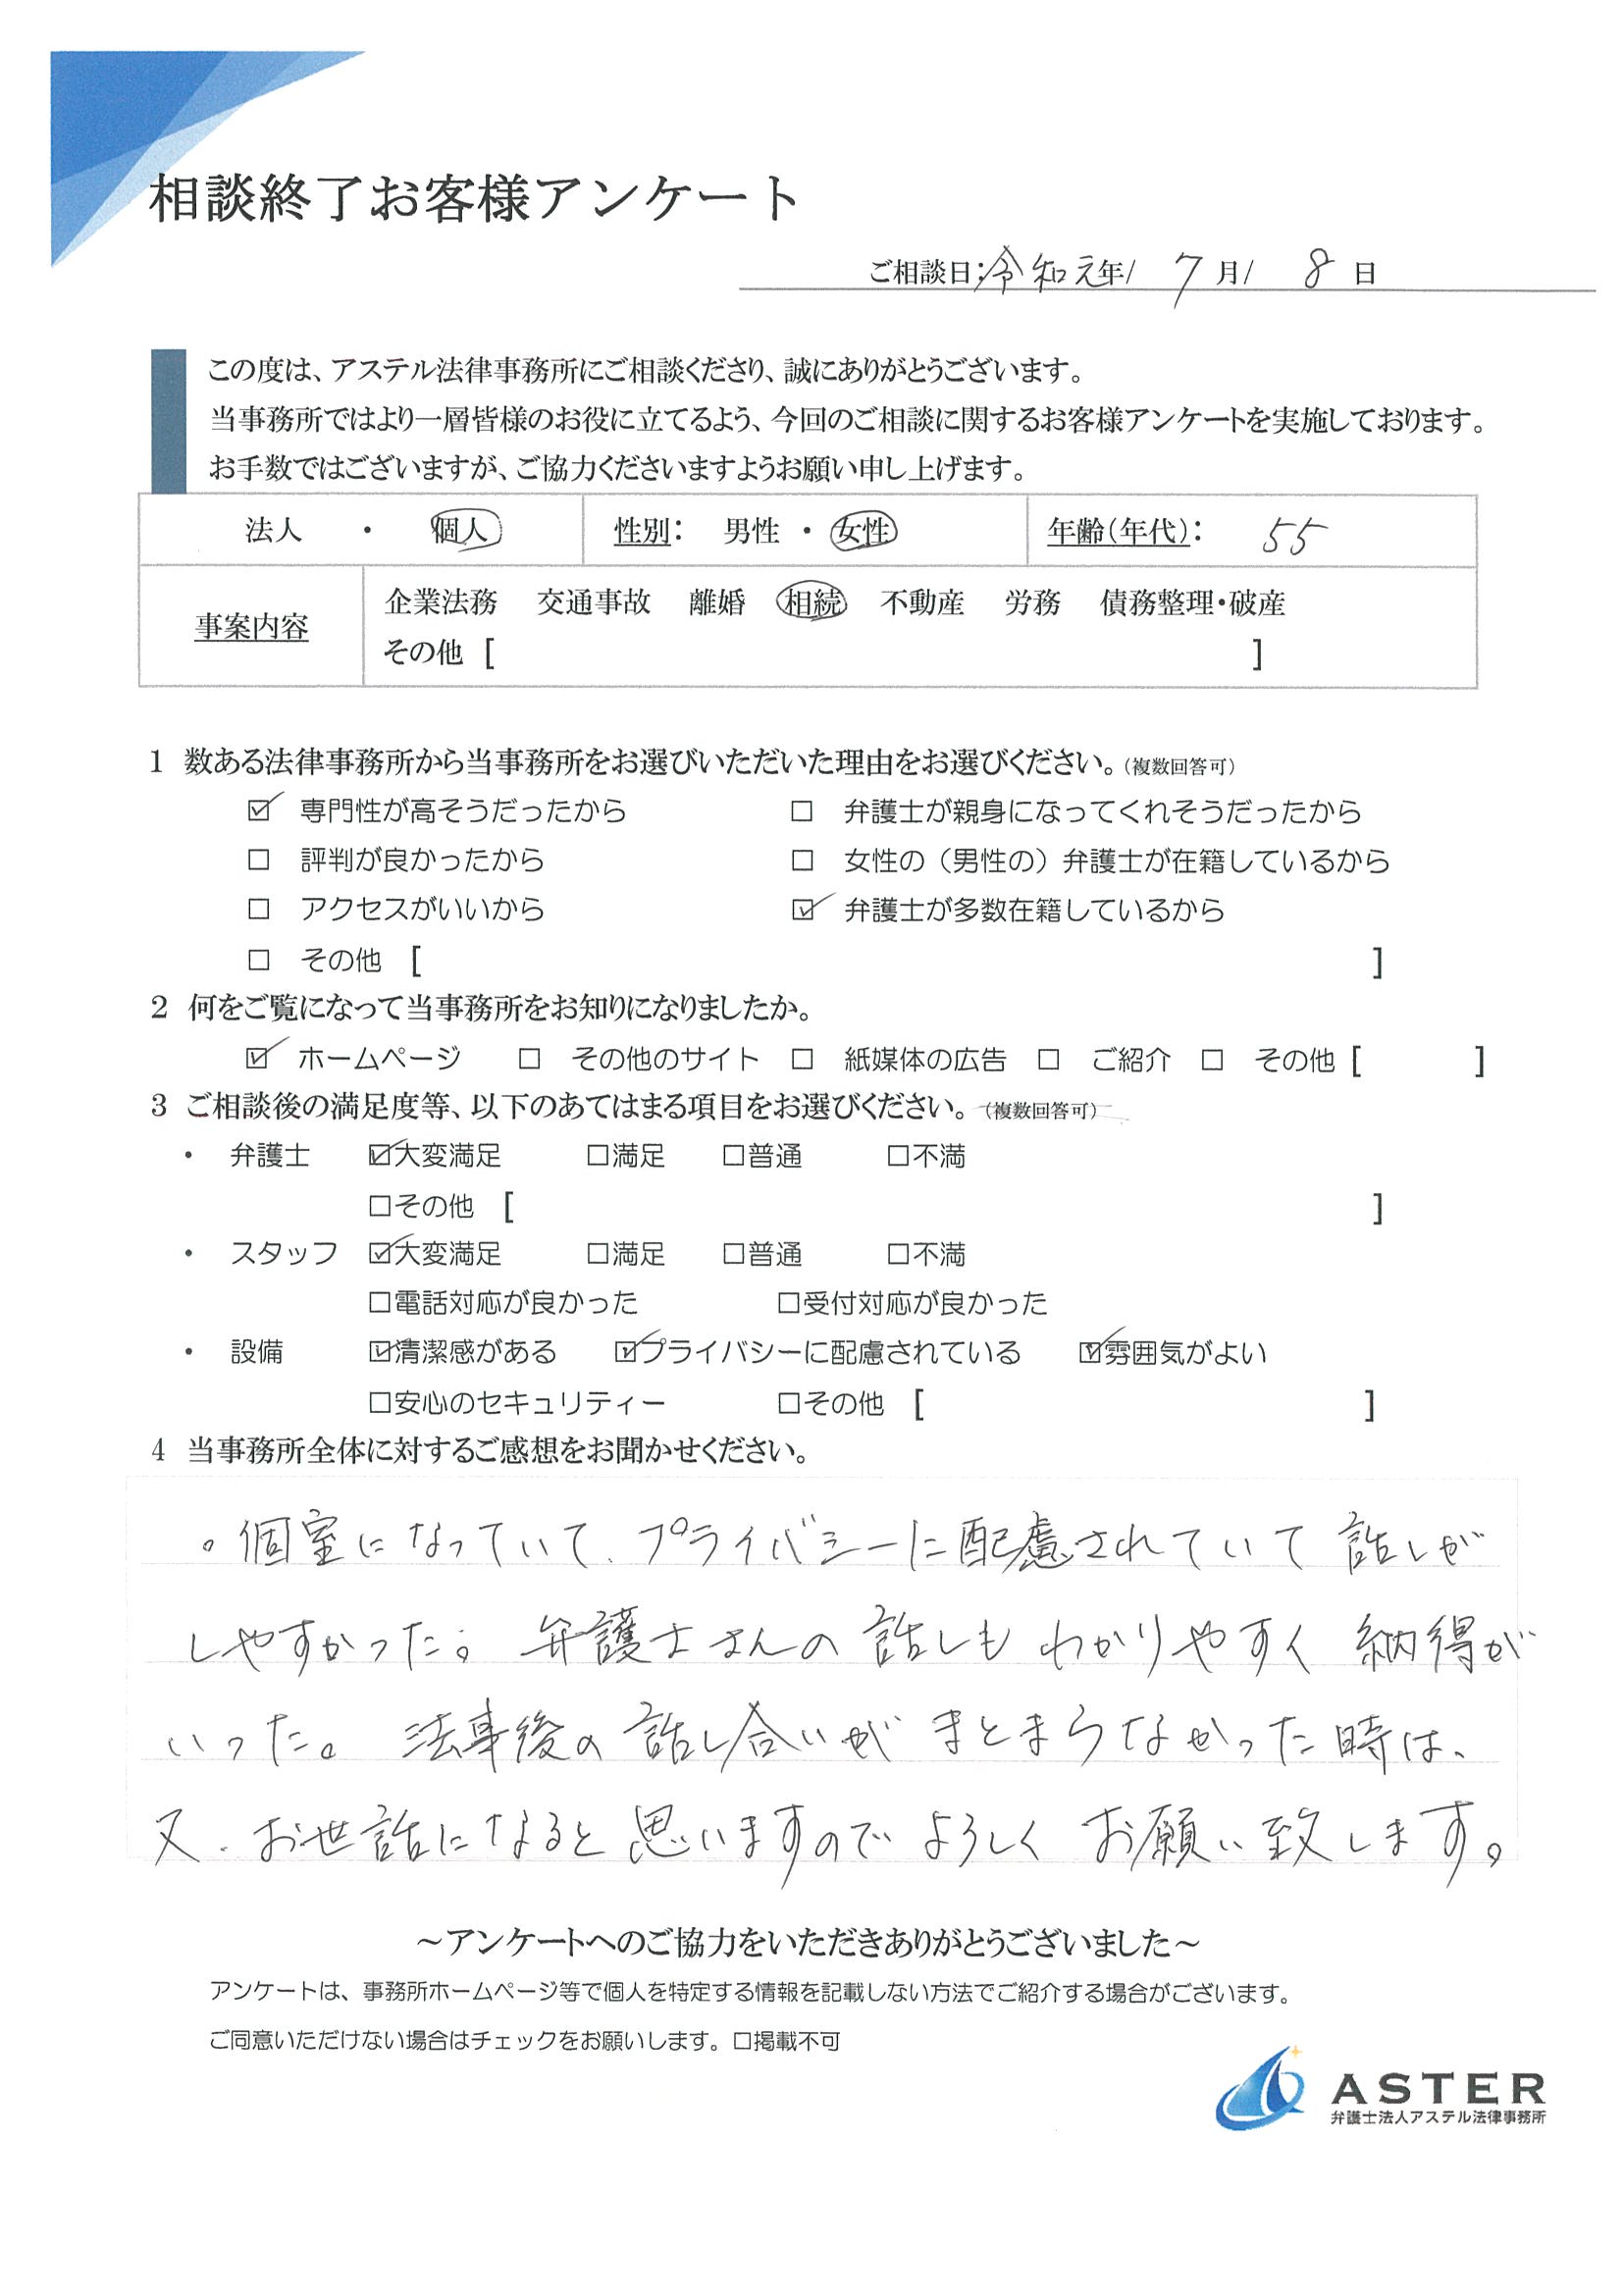 相談終了お客様アンケート
ご相談日：令和元年/ 7月/ 8日
この度は、アステル法律事務所にご相談くださり、誠にありがとうございます。
当事務所ではより一層皆様のお役に立てるよう、今回のご相談に関するお客様アンケートを実施しております。
お手数ではございますが、ご協力くださいますようお願い申し上げます。
法人 ・ 個人 性別： 男性 ・ 女性 年齢（年代）： 55
事案内容 企業法務 交通事故 離婚 相続 不動産 労務 債務整理・破産
その他 [ ]
1 数ある法律事務所から当事務所をお選びいただいた理由をお選びください。（複数回答可）
☑ 専門性が高そうだったから □ 弁護士が親身になってくれそうだったから
□ 評判が良かったから □ 女性の（男性の）弁護士が在籍しているから
□ アクセスがいいから ☑ 弁護士が多数在籍しているから
□ その他 [ ]
2 何をご覧になって当事務所をお知りになりましたか。
☑ ホームページ □ その他のサイト □ 紙媒体の広告 □ ご紹介 □ その他 [ ]
3 ご相談後の満足度等、以下のあてはまる項目をお選びください。（複数回答可）
・ 弁護士 ☑大変満足 □満足 □普通 □不満
□その他 [ ]
・ スタッフ ☑大変満足 □満足 □普通 □不満
□電話対応が良かった □受付対応が良かった
・ 設備 ☑清潔感がある ☑プライバシーに配慮されている ☑雰囲気がよい
□安心のセキュリティー □その他 [ ]
4 当事務所全体に対するご感想をお聞かせください。
。個室になっていて、プライバシーに配慮されていて 話しが
しやすかった。弁護士さんの話しも わかりやすく 納得が
いった。法事後の話し合いが まとまらなかった時は、
又、お世話になると思いますので よろしく お願い致します。
～アンケートへのご協力をいただきありがとうございました～
アンケートは、事務所ホームページ等で個人を特定する情報を記載しない方法でご紹介する場合がございます。
ご同意いただけない場合はチェックをお願いします。□掲載不可
ASTER
弁護士法人アステル法律事務所